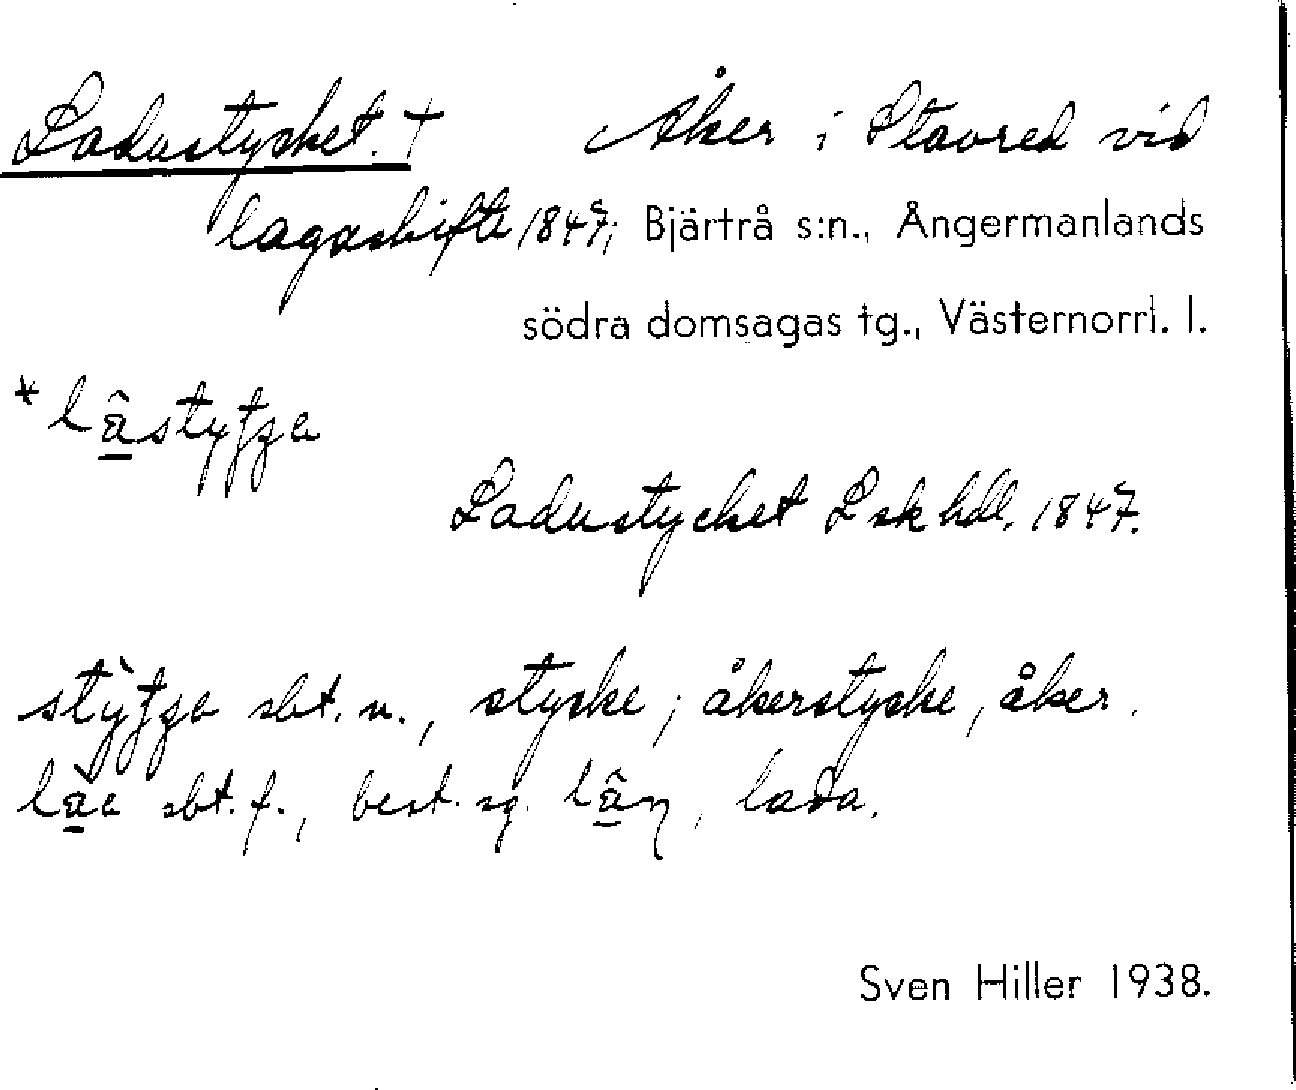 Ladustycket. † Åker i Stavred vid
lagaskifte 1847; Bjärtrå s:n., Ångermanlands
södra domsagas tg., Västernorrl. l.
Ladustycket Lskhdl. 1847.
sbt. n., stycke; åkerstycke, åker.
sbt. f., best. sg. lada.
Sven Hiller 1938.